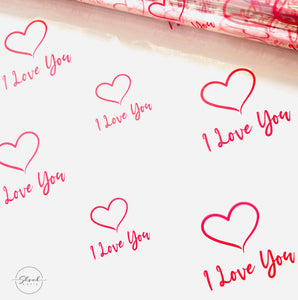 I Love You
I Love You
I Love You
Love You
I Love You
I Love You